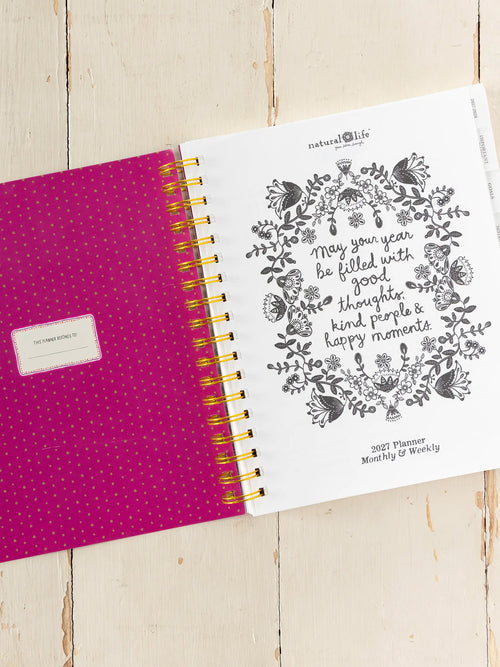 THIS PLANNER BELONGS TO:
natural life
May your year
be filled with
good
thoughts,
kind people &
happy moments.
2027 Planner
Monthly & Weekly
IMPORTANT
GOALS